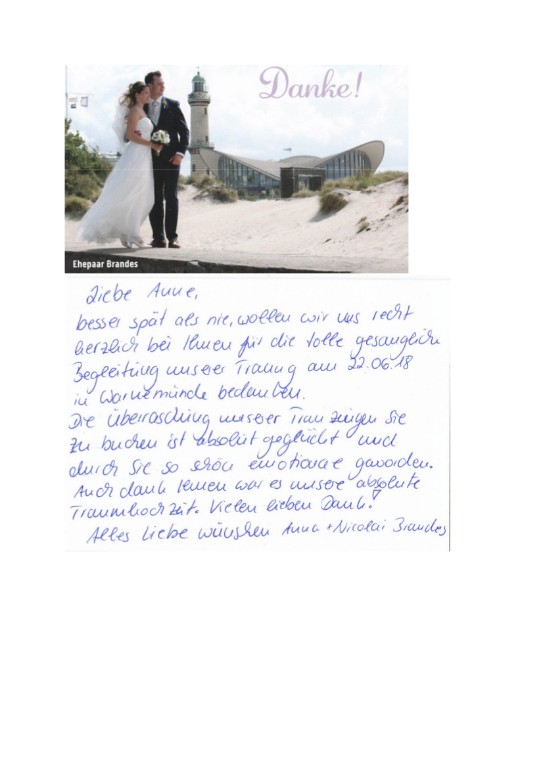 Danke!
Ehepaar Brandes
Liebe Anne,
besser spät als nie, wollen wir uns recht
herzlich bei Ihnen für die tolle gesanglich
Begleitung unserer Trauung am 22.06.18
in Warnemünde bedanken.
Die Überraschung unserer Trauzeugen Sie
zu buchen ist absolut geglückt und
durch Sie so schön emotional geworden.
Auch dank Ihnen war es unsere absolute
Traumhochzeit. Vielen lieben Dank!
Alles Liebe wünschen Anna + Nicolai Brandes